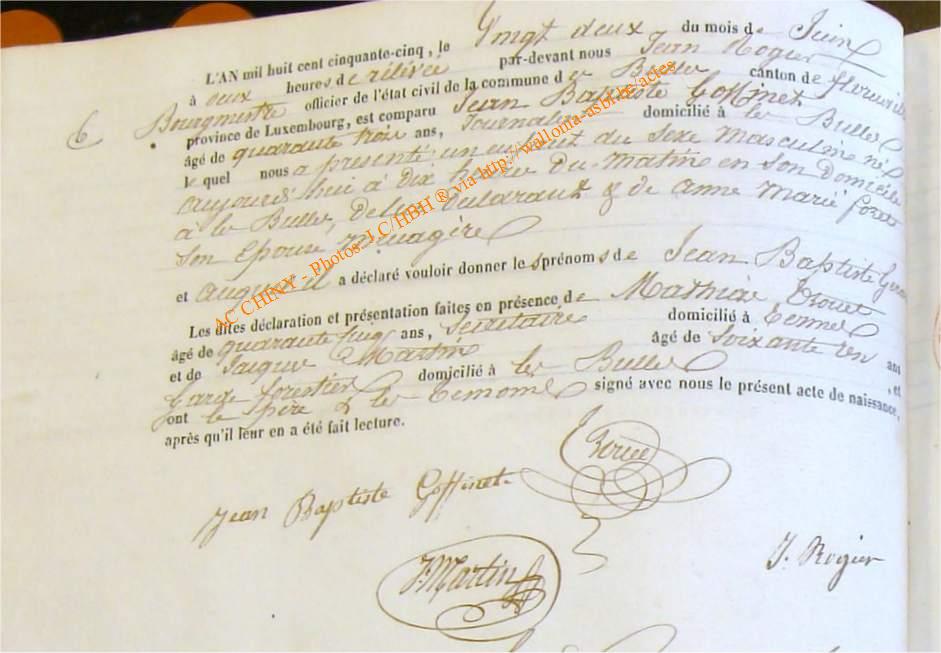 L'AN mil huit cent cinquante-cinq, le Vingt deux du mois de Juin
à deux heures de rélévé par-devant nous Jean Rogier
6 Bourgmestre officier de l'état civil de la commune de Bulles canton de
province de Luxembourg, est comparu Jean Baptiste Goffinet
âgé de quarante trois ans, Journalier domicilié à les Bulles
le quel nous a présenté un enfant du Sexe masculin né
aujourd'hui à Dix heures Du matin en son Domicile
à les Bulles, De lui & de anne Marie
Son Epouse menagère
et auquel il a déclaré vouloir donner les prénoms de Jean Baptiste
Les dites déclaration et présentation faites en présence de Mathias
âgé de quarante cinq ans, Secretaire domicilié à
et de Jacque Martin âgé de Soixante ans
Garde forestier domicilié à les Bulles , et
ont le père & les signé avec nous le présent acte de naissance,
après qu'il leur en a été fait lecture.
Jean Baptiste Goffinet
J. Martin
J. Rogier
AC CHINY - Photos J C/HBH ® via http://wallonia-asbl.be/actes